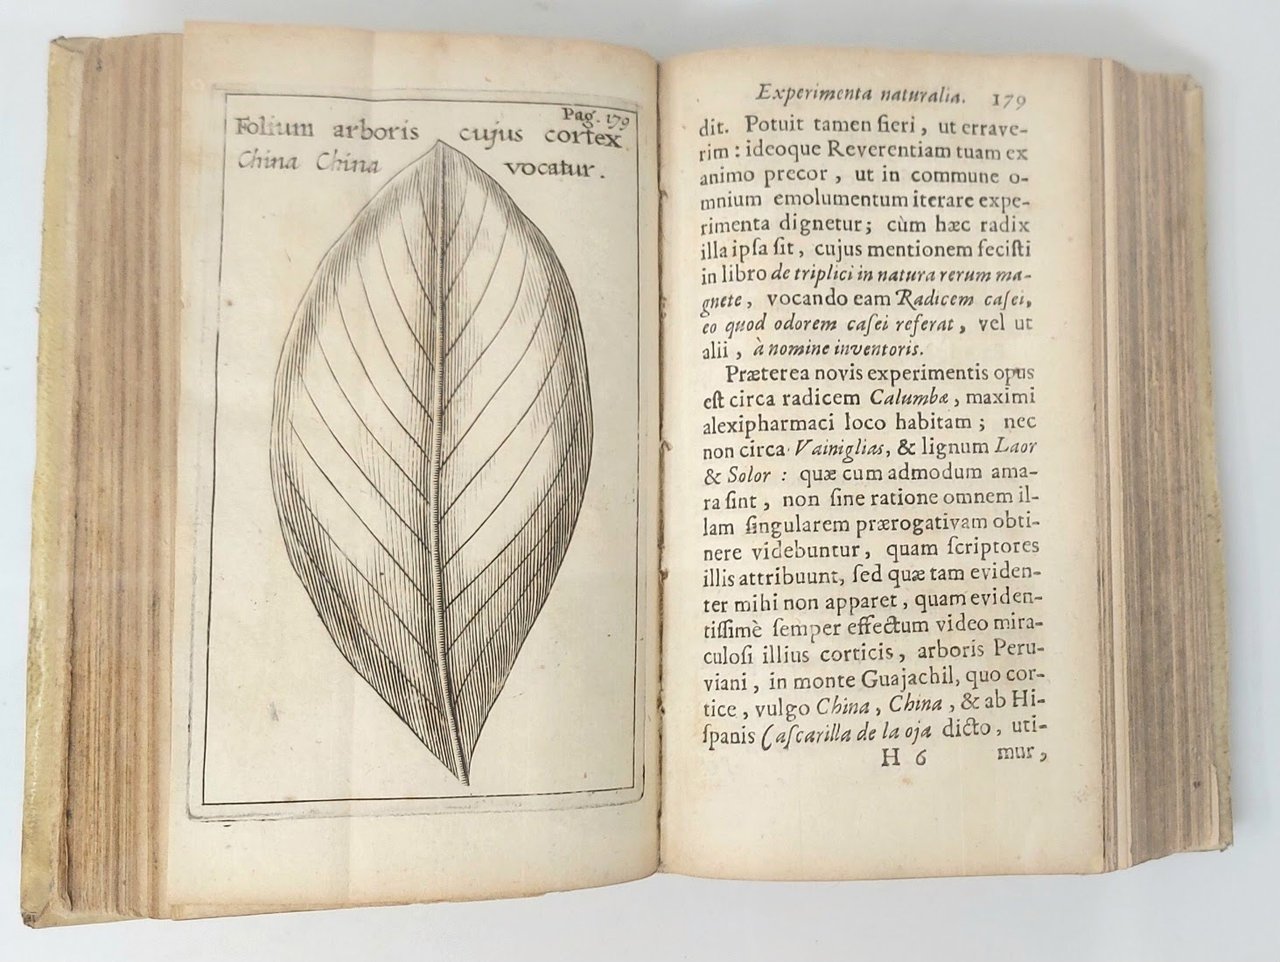 Pag. 179
Folium arboris cujus cortex
China China vocatur.
Experimenta naturalia. 179
dit. Potuit tamen fieri, ut errave-
rim : ideoque Reverentiam tuam ex
animo precor, ut in commune o-
mnium emolumentum iterare expe-
rimenta dignetur; cùm hæc radix
illa ipſa ſit, cujus mentionem feciſti
in libro de triplici in natura rerum ma-
gnete, vocando eam Radicem caſei,
eo quod odorem caſei referat, vel ut
alii, à nomine inventoris.
Præterea novis experimentis opus
eſt circa radicem Calumbæ, maximi
alexipharmaci loco habitam; nec
non circa Vainiglias, & lignum Laor
& Solor : quæ cum admodum ama-
ra ſint, non ſine ratione omnem il-
lam ſingularem prærogativam obti-
nere videbuntur, quam ſcriptores
illis attribuunt, ſed quæ tam eviden-
ter mihi non apparet, quam eviden-
tiſſimè ſemper effectum video mira-
culoſi illius corticis, arboris Peru-
viani, in monte Guajachil, quo cor-
tice, vulgo China, China, & ab Hi-
ſpanis Caſcarilla de la oja dicto, uti-
H 6 mur,